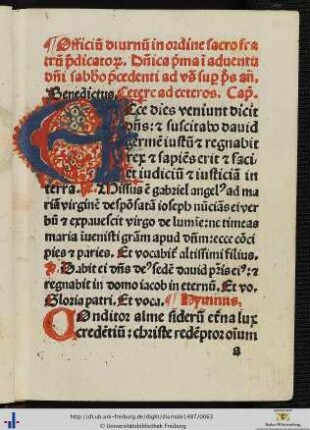 ¶Officiũ diurnũ in ordine sacro fra
trũ p̃dicatoꝝ. Dñica pꝛma ĩ aduentu
dñi sabbo p̃cedenti ad vs̃ sup ps̃ añ.
Benedictus. Cetere ad ceteros. Cap.
Ecce dies veniunt dicit
dñs: ⁊ suscitabo dauid
germẽ iustũ ⁊ regnabit
rex ⁊ sapiẽs erit ⁊ faci
et iudiciũ ⁊ iusticiã in
terra. ℟ Missus ẽ gabriel angelꝰ ad ma
riã virginẽ despõsatã ioseph nũciãs ei ver
bũ ⁊ expauescit virgo de lumie: ne timeas
maria iuenisti gr̃am apud dñm: ecce cõci
pies ⁊ paries. Et vocabit̃ altissimi filius.
℣ Dabit ei dñs deꝰ sedẽ dauid pr̃is eiꝰ: ⁊
regnabit in domo iacob in eternũ. Et vo.
Gloria patri. Et voca. ¶Hymnus.
Conditor alme siderũ et̃na lux
credẽtiũ: christe redẽptor oĩum
a
http://dl.ub.uni-freiburg.de/diglit/diurnale1487/0063
© Universitätsbibliothek Freiburg
Baden-Württemberg